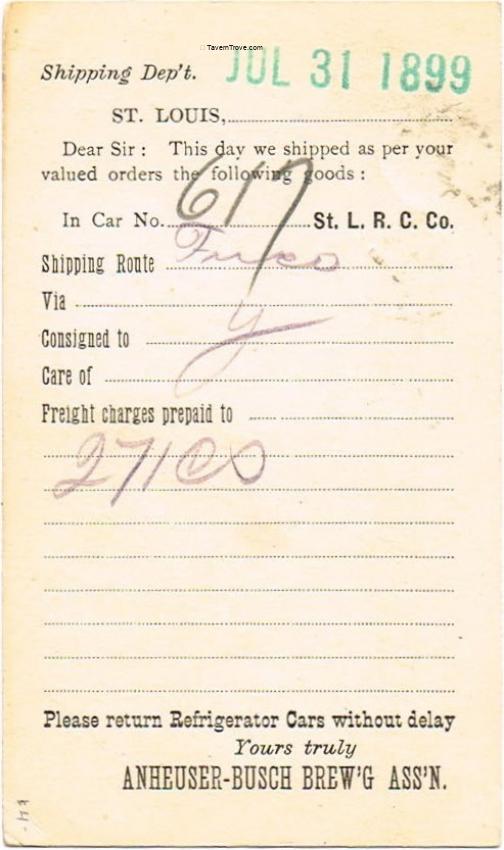 © TavernTrove.com
Shipping Dep't. JUL 31 1899
ST. LOUIS,
Dear Sir : This day we shipped as per your
valued orders the following goods :
In Car No. 617 St. L. R. C. Co.
Shipping Route Frisco
Via
Consigned to y
Care of
Freight charges prepaid to
Please return Refrigerator Cars without delay
Yours truly
ANHEUSER-BUSCH BREW'G ASS'N.